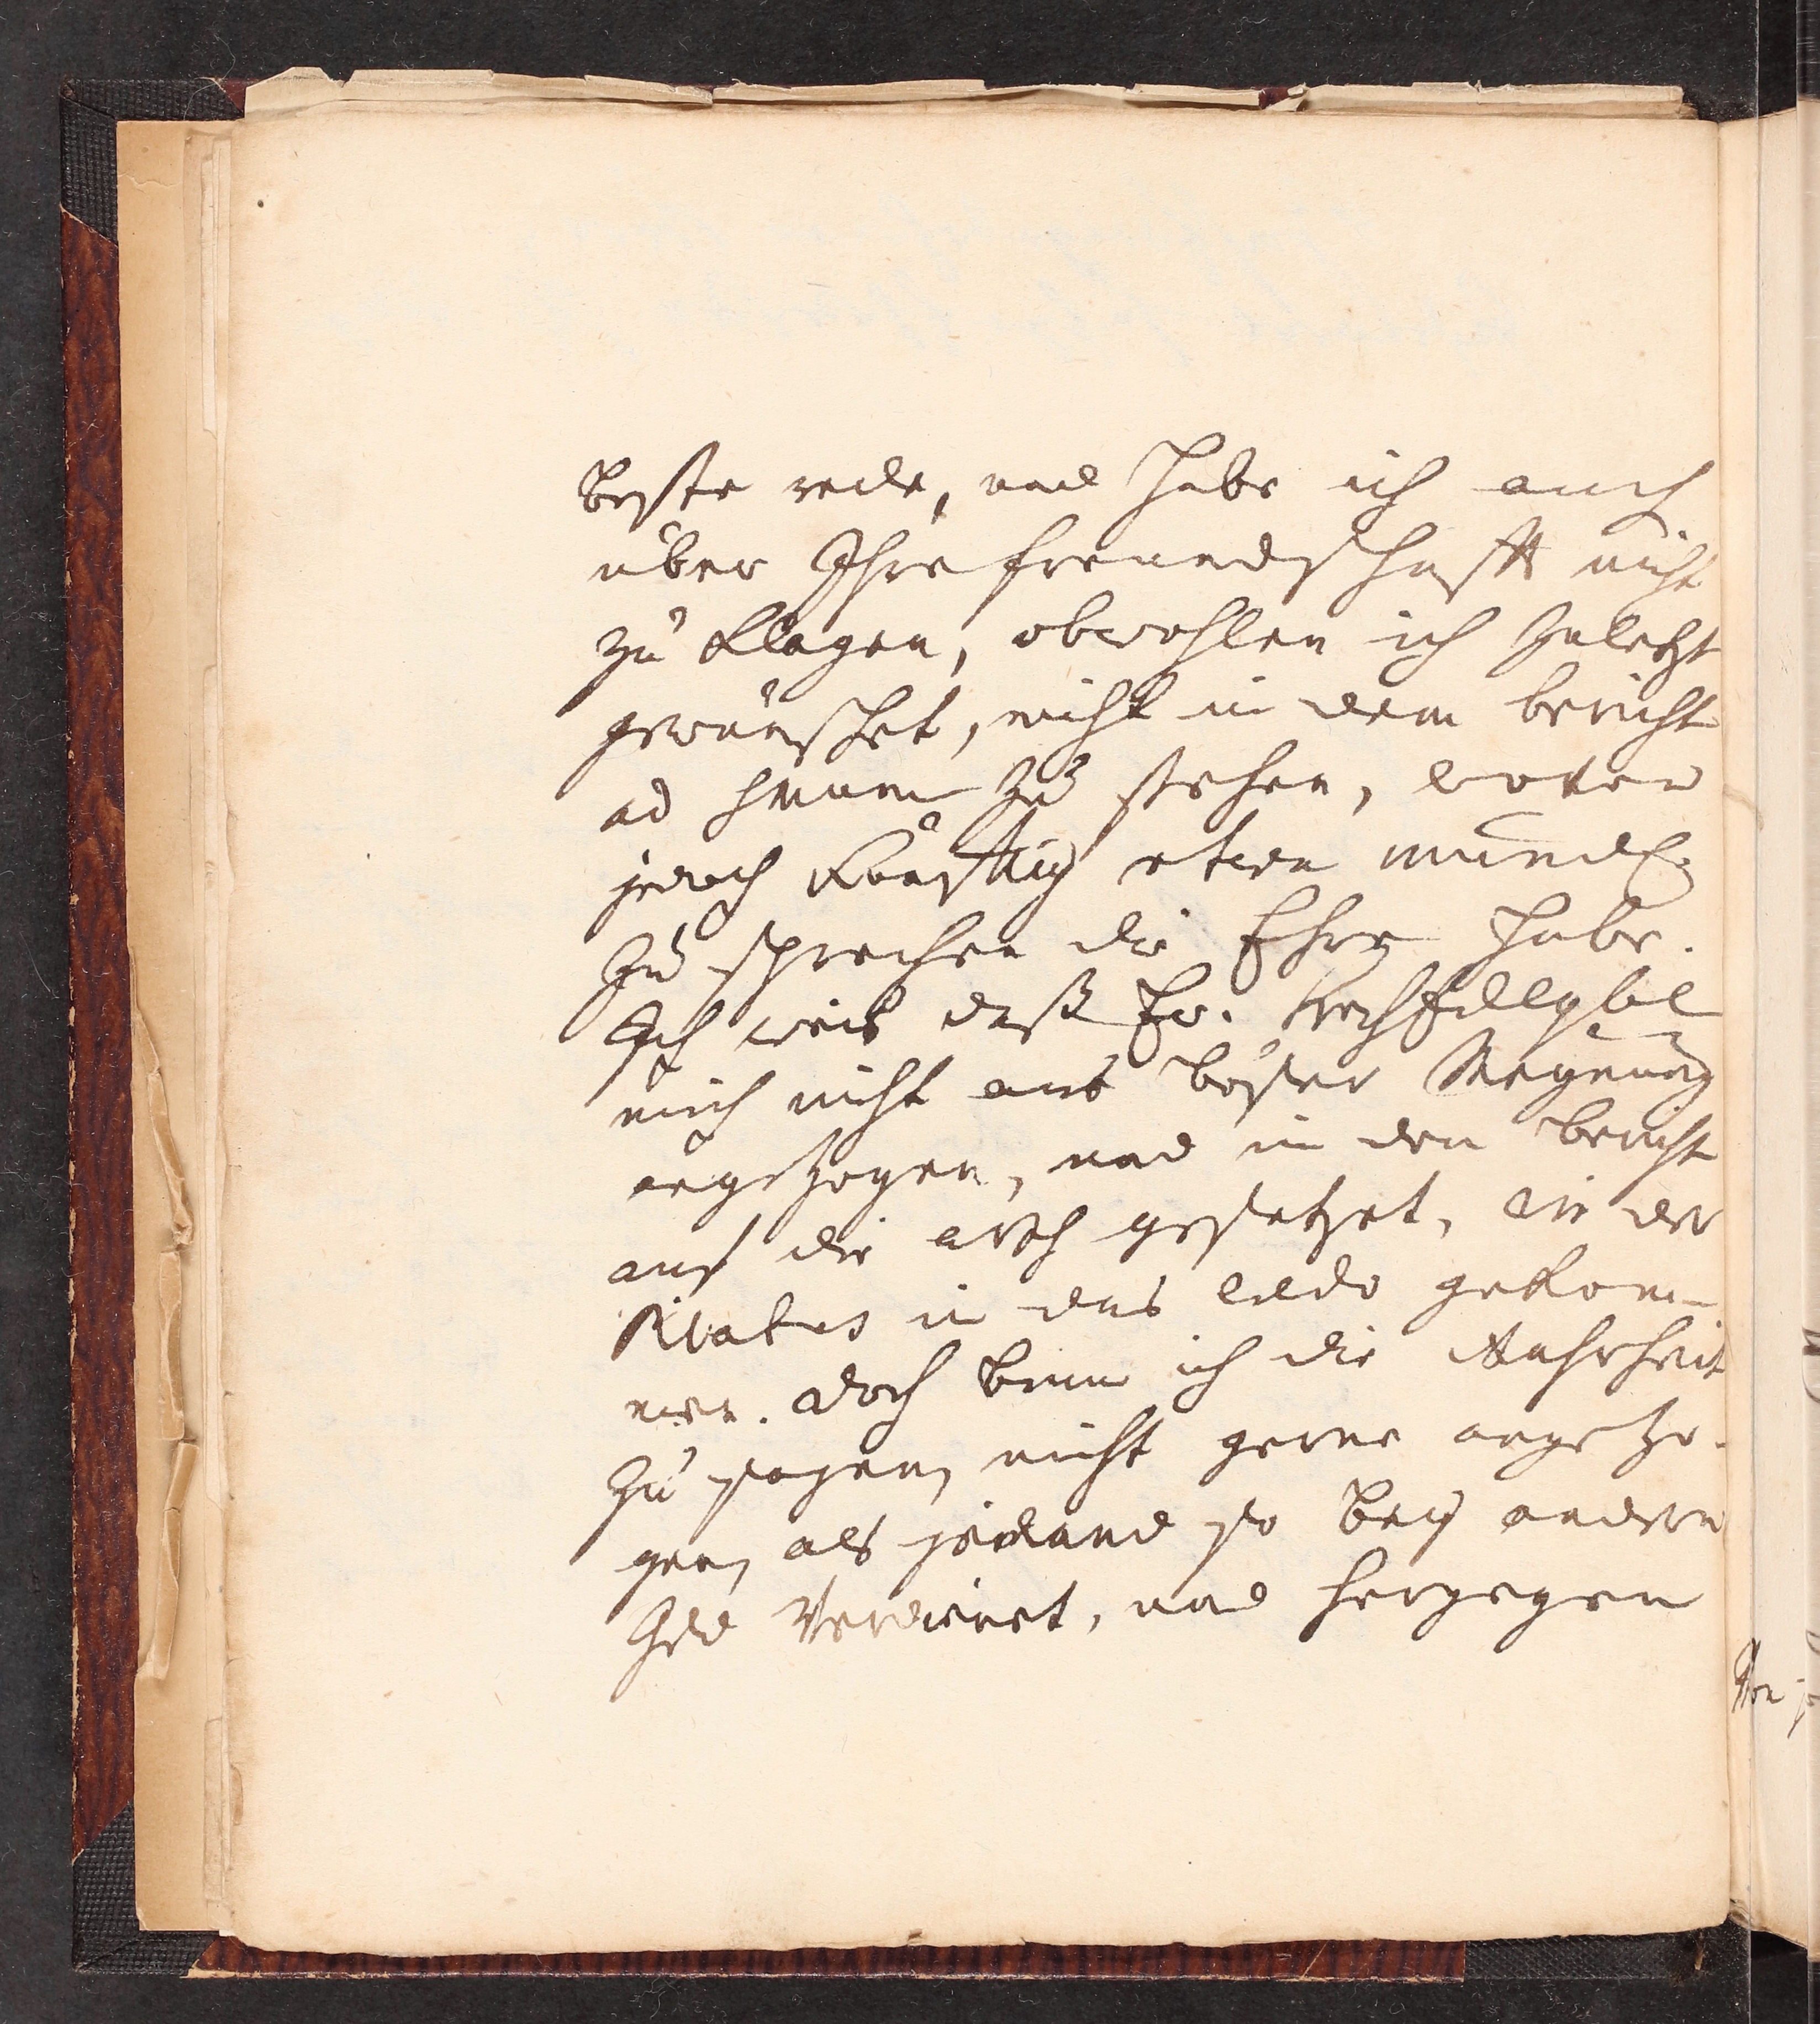 beste rede, und habe ich auch
über Ihre freundschafft nicht
zu klagen, obwohlen ich zuletzt
gewünschet, nicht in dem bericht
ad zu stehen, wovon
jedoch künfftig etwan mündl.
zu sprechen die Ehre habe.
Ich weis daß Ew.
mich nicht aus böser Meynung
angezogen, und in den bericht
auf die arth gesetzet, wie der
Pilatus in das Credo gekom-
men. doch binn ich die Wahrheit
zu sagen, nicht gerne angezo-
gen, als jemand so bey andern
Geld verdienet, und hergegen